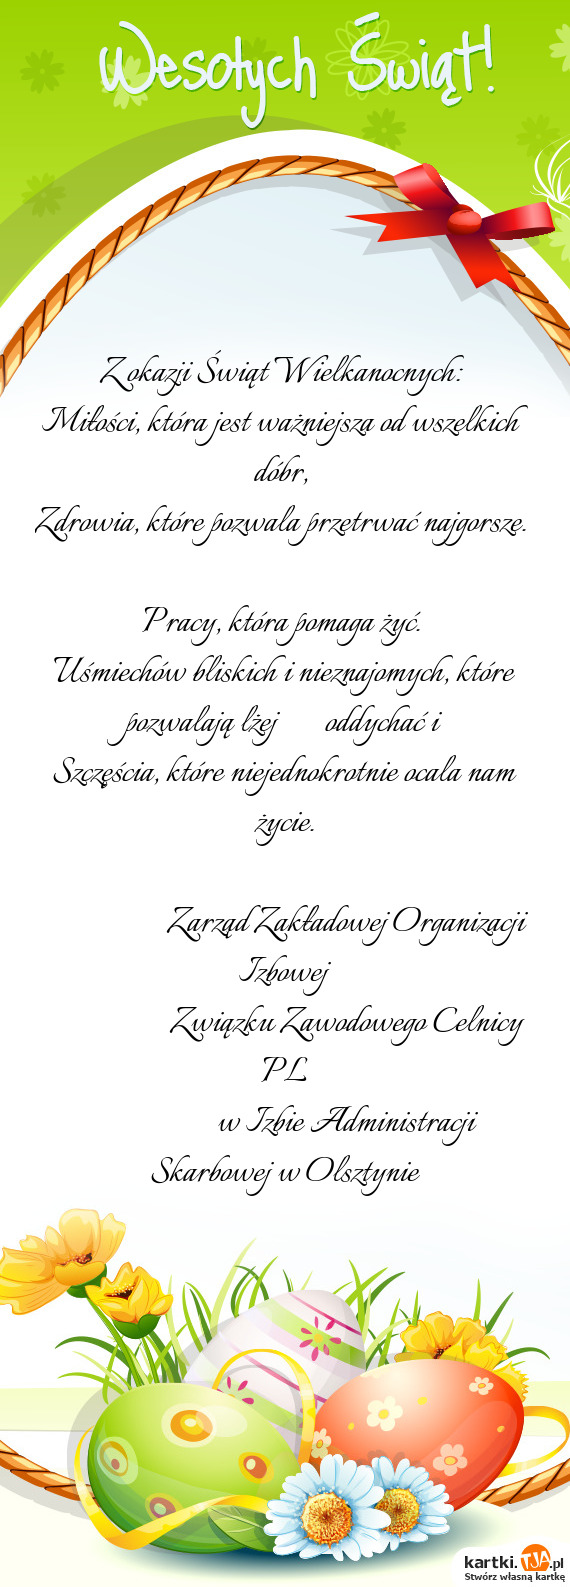 Wesołych Świąt!
Z okazji Świąt Wielkanocnych:
Miłości, która jest ważniejsza od wszelkich
dóbr,
Zdrowia, które pozwala przetrwać najgorsze.
Pracy, która pomaga żyć.
Uśmiechów bliskich i nieznajomych, które
pozwalają lżej oddychać i
Szczęścia, które niejednokrotnie ocala nam
życie.
Zarząd Zakładowej Organizacji
Izbowej
Związku Zawodowego Celnicy
PL
w Izbie Administracji
Skarbowej w Olsztynie
kartki.TJA.pl
Stwórz własną kartkę